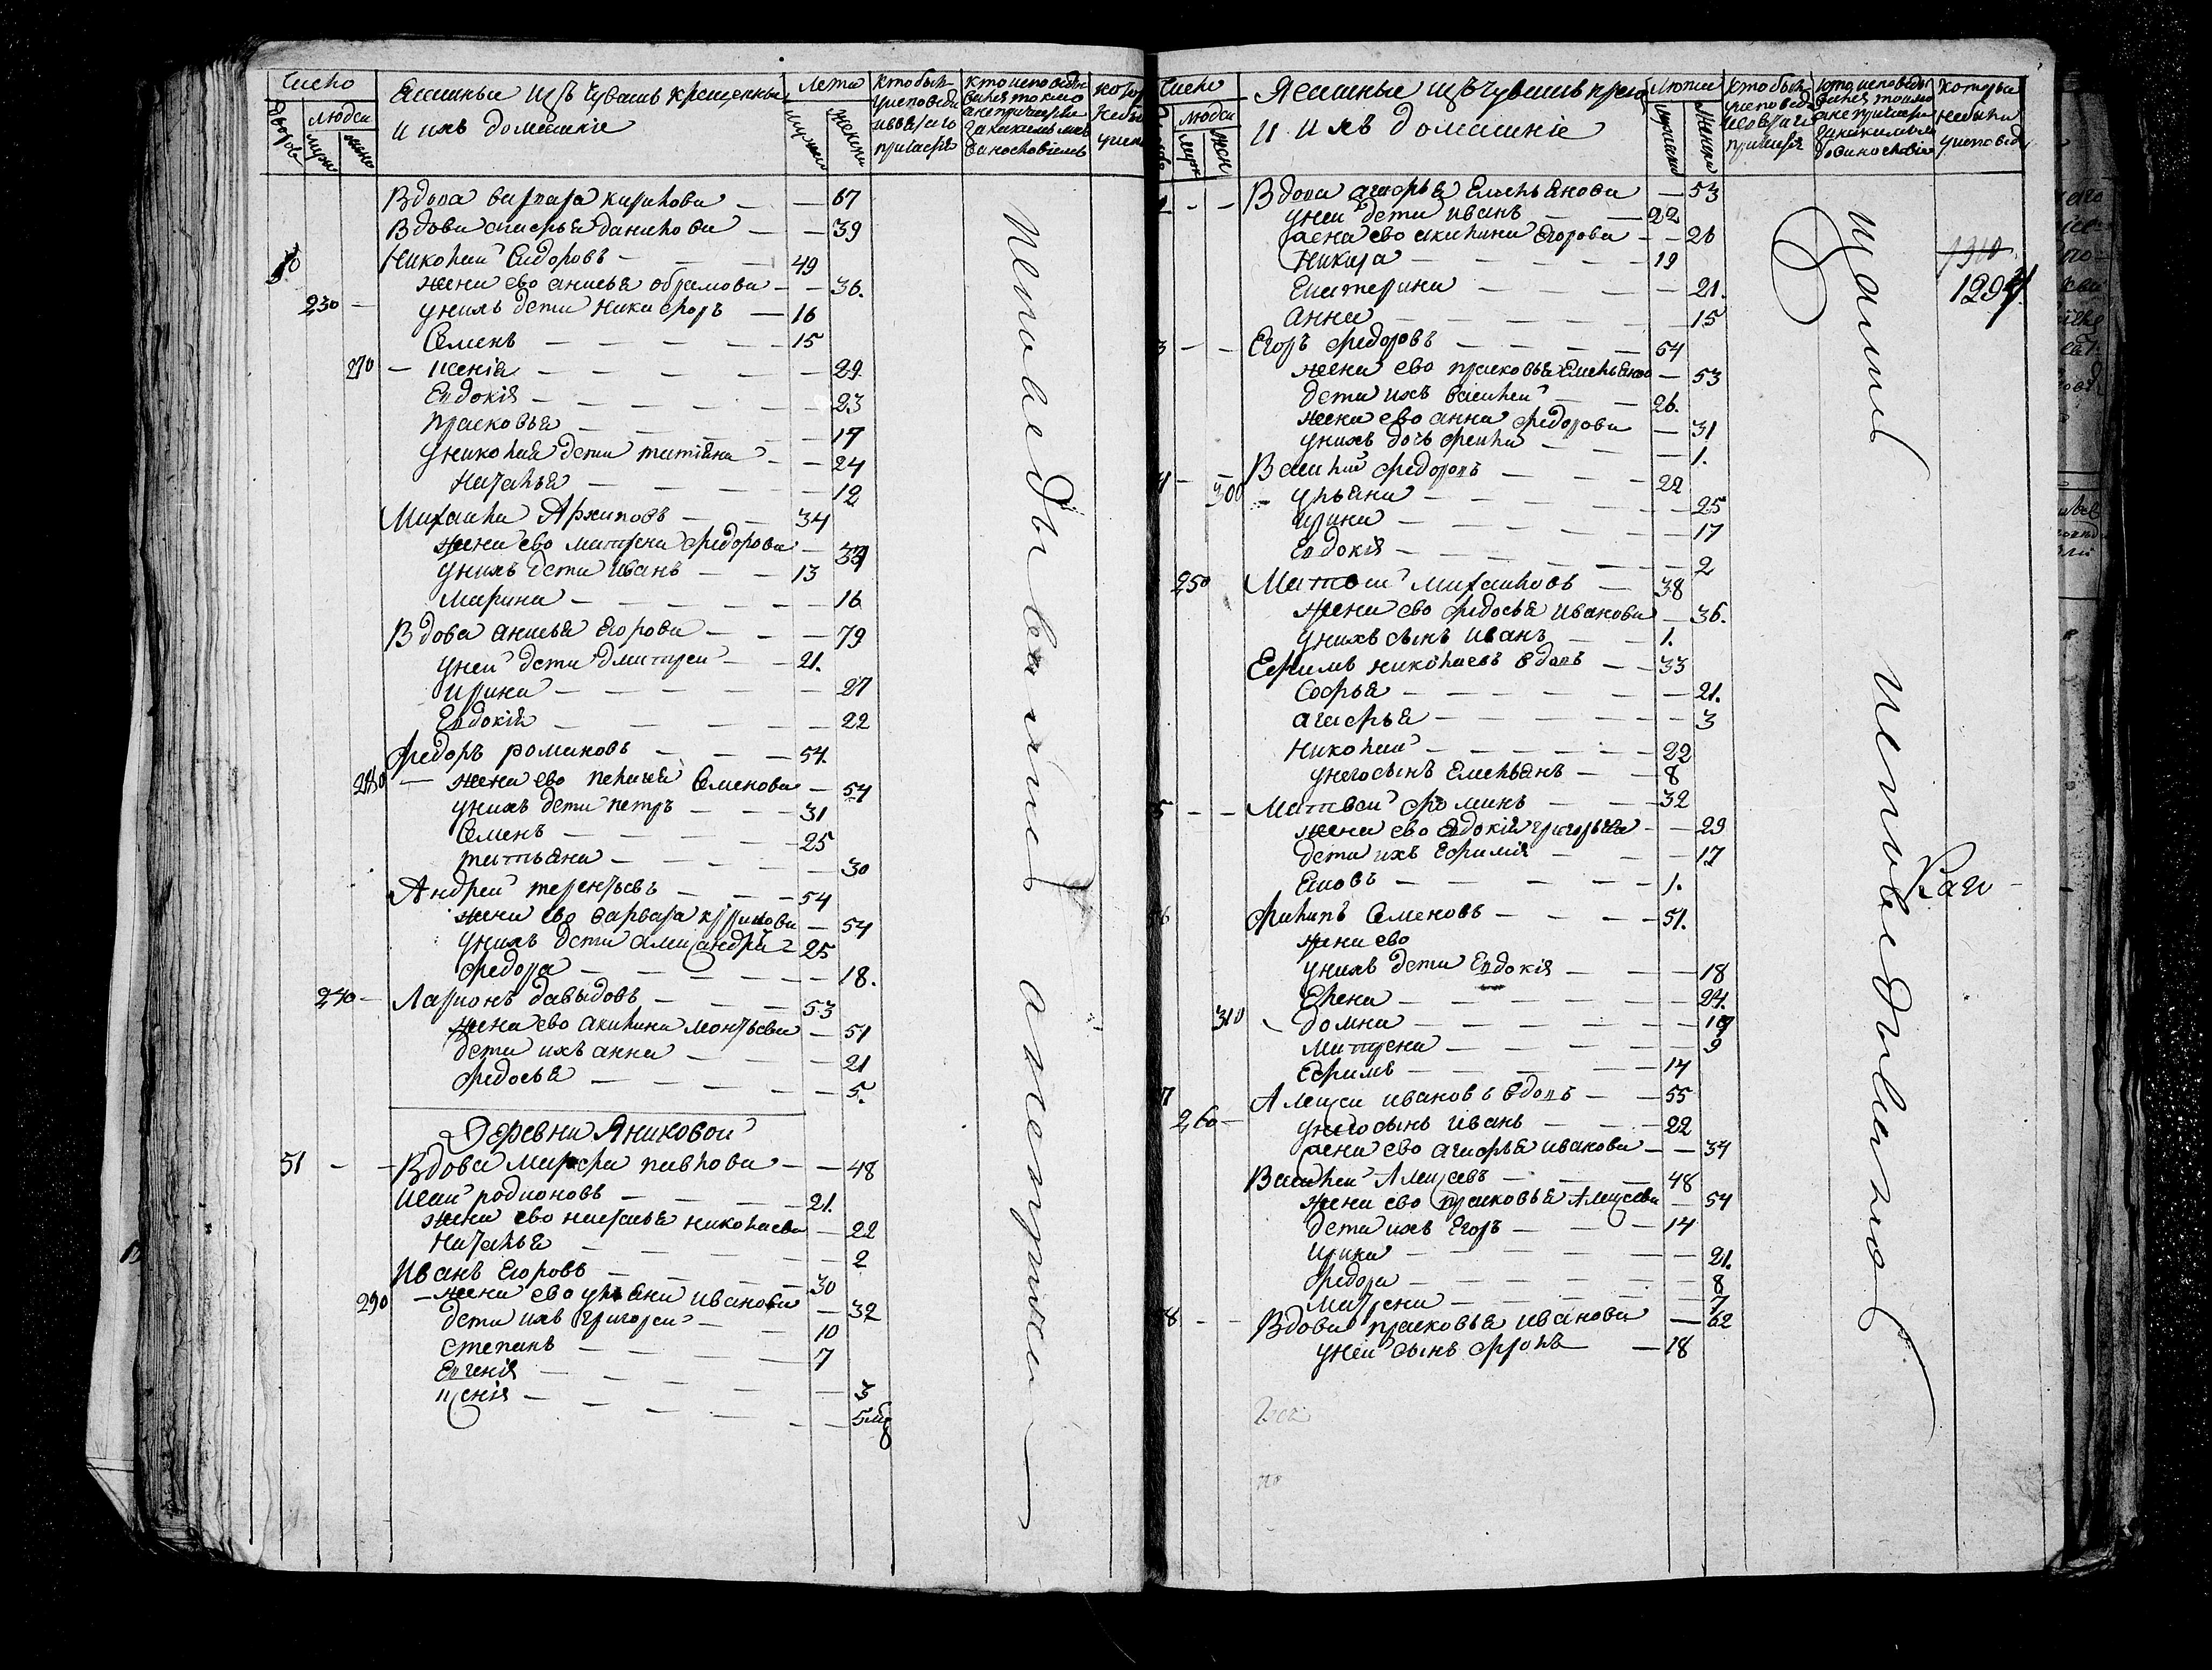 Число
Ясашныя изъ Чувашъ крещеныя
и ихъ домашніе
Лета
дворовъ
людеи
муж
женс
мужеска
женска
кто былъ
у исповеди
и св таго
причастія
кто исповеды
вался токмо
а не причасти
за какимъ либо
винословіемъ
Вдова варвара кирилова — — 67
Вдова агафья данилова — — 39
50 Николай Сидоровъ — 49
жена ево анисья обрамова — — 36.
230 — у нихъ дети никифоръ — 16
Семенъ — 15
270 — ксенія — 29
Евдокія — 23
прасковья — 17
у николая дети татіяна — — 24
Наталья — 12
Михаила Архиповъ — 34
жена ево матрена федорова —
у нихъ дети иванъ — 13
Марина — 16
Вдова анисья егорова — 79
у неи дети дмитреи — 21.
ирина — 27
Евдокія — 22
федоръ романовъ — 54.
280 — жена ево пелагея Семенова — 54
у нихъ дети петръ — 31
Семенъ — 25
татьяна — 30
Андреи терентьевъ — 54
жена ево варвара кирилова — 54
у нихъ дети александръ — 25
федора — 18.
240 — Ларионъ давыдовъ — 53
жена ево акилина леонтьева — 51
дети ихъ анна — 21
федосья — 5.
Деревни Яниковой
51 — — Вдова Марфа павлова — — 48
Исаи родионовъ — 21.
жена ево настасья николаева — 22
Наталья — 2
Иванъ Егоровъ — 30
290 — жена ево ульяна иванова — 32
дети ихъ григореи — 10
степанъ — 7
Евгенія — 3
ксенія — 5
исповедывались а не приняли
Число
Ясашныя изъ чувашъ крещ
и ихъ домашніе
Летa
людеи
муж
жен
мужеска
женска
кто былъ
у исповеди
и св таго
причастія
кто исповеды
вался токмо
а не причасти
за какимъ либо
винословіем
которыя
небыли
у исповеди
— — Вдова агафья Емельянова — 53
у неи дети иванъ — 22
жена ево акилина Егорова — — 26
Никита — 19
Екатерина — 21.
анна — 15
3 — — Егоръ федоровъ — 54
жена ево прасковья Емельянов — 53
дети ихъ василеи — 26.
жена ево анна федорова — 31
у нихъ дочь фекла — 1.
4 — — Василий федоровъ — 22
300 — ульяна — 25
ирина — 17
Евдокія — 2
250 Матвеи михаиловъ — 38
жена ево федосья иванова — 36.
у нихъ сынъ иванъ — 1.
Ефимъ николаевъ вдовъ — 33
Софья — 21.
агафья — 3
николаи — 22
у него сынъ Емельянъ — 8
5 — — Матвеи фоминъ — 32
жена ево Евдокія григорьева — — 29
дети ихъ Ефимія — 17
Еаковъ — 1.
6 филипъ Семеновъ — 51.
жена ево
у нихъ дети Евдокія — 18
Елена — 24.
310 — домна —
Матрена — 9
Ефимъ — 14
7 Алексеи ивановъ вдовъ — 55
260 — у него сынъ иванъ — 22
жена ево агафья иванова — — 34
Василеи Алексеевъ — 48
жена ево прасковья Алексеева — 54
дети ихъ Егоръ — 14
ирина — 21.
федора — 8
матрена — 7
8 — — Вдова прасковья иванова — 62
у неи сынъ фролъ — 18
исповедывались
1310
1294